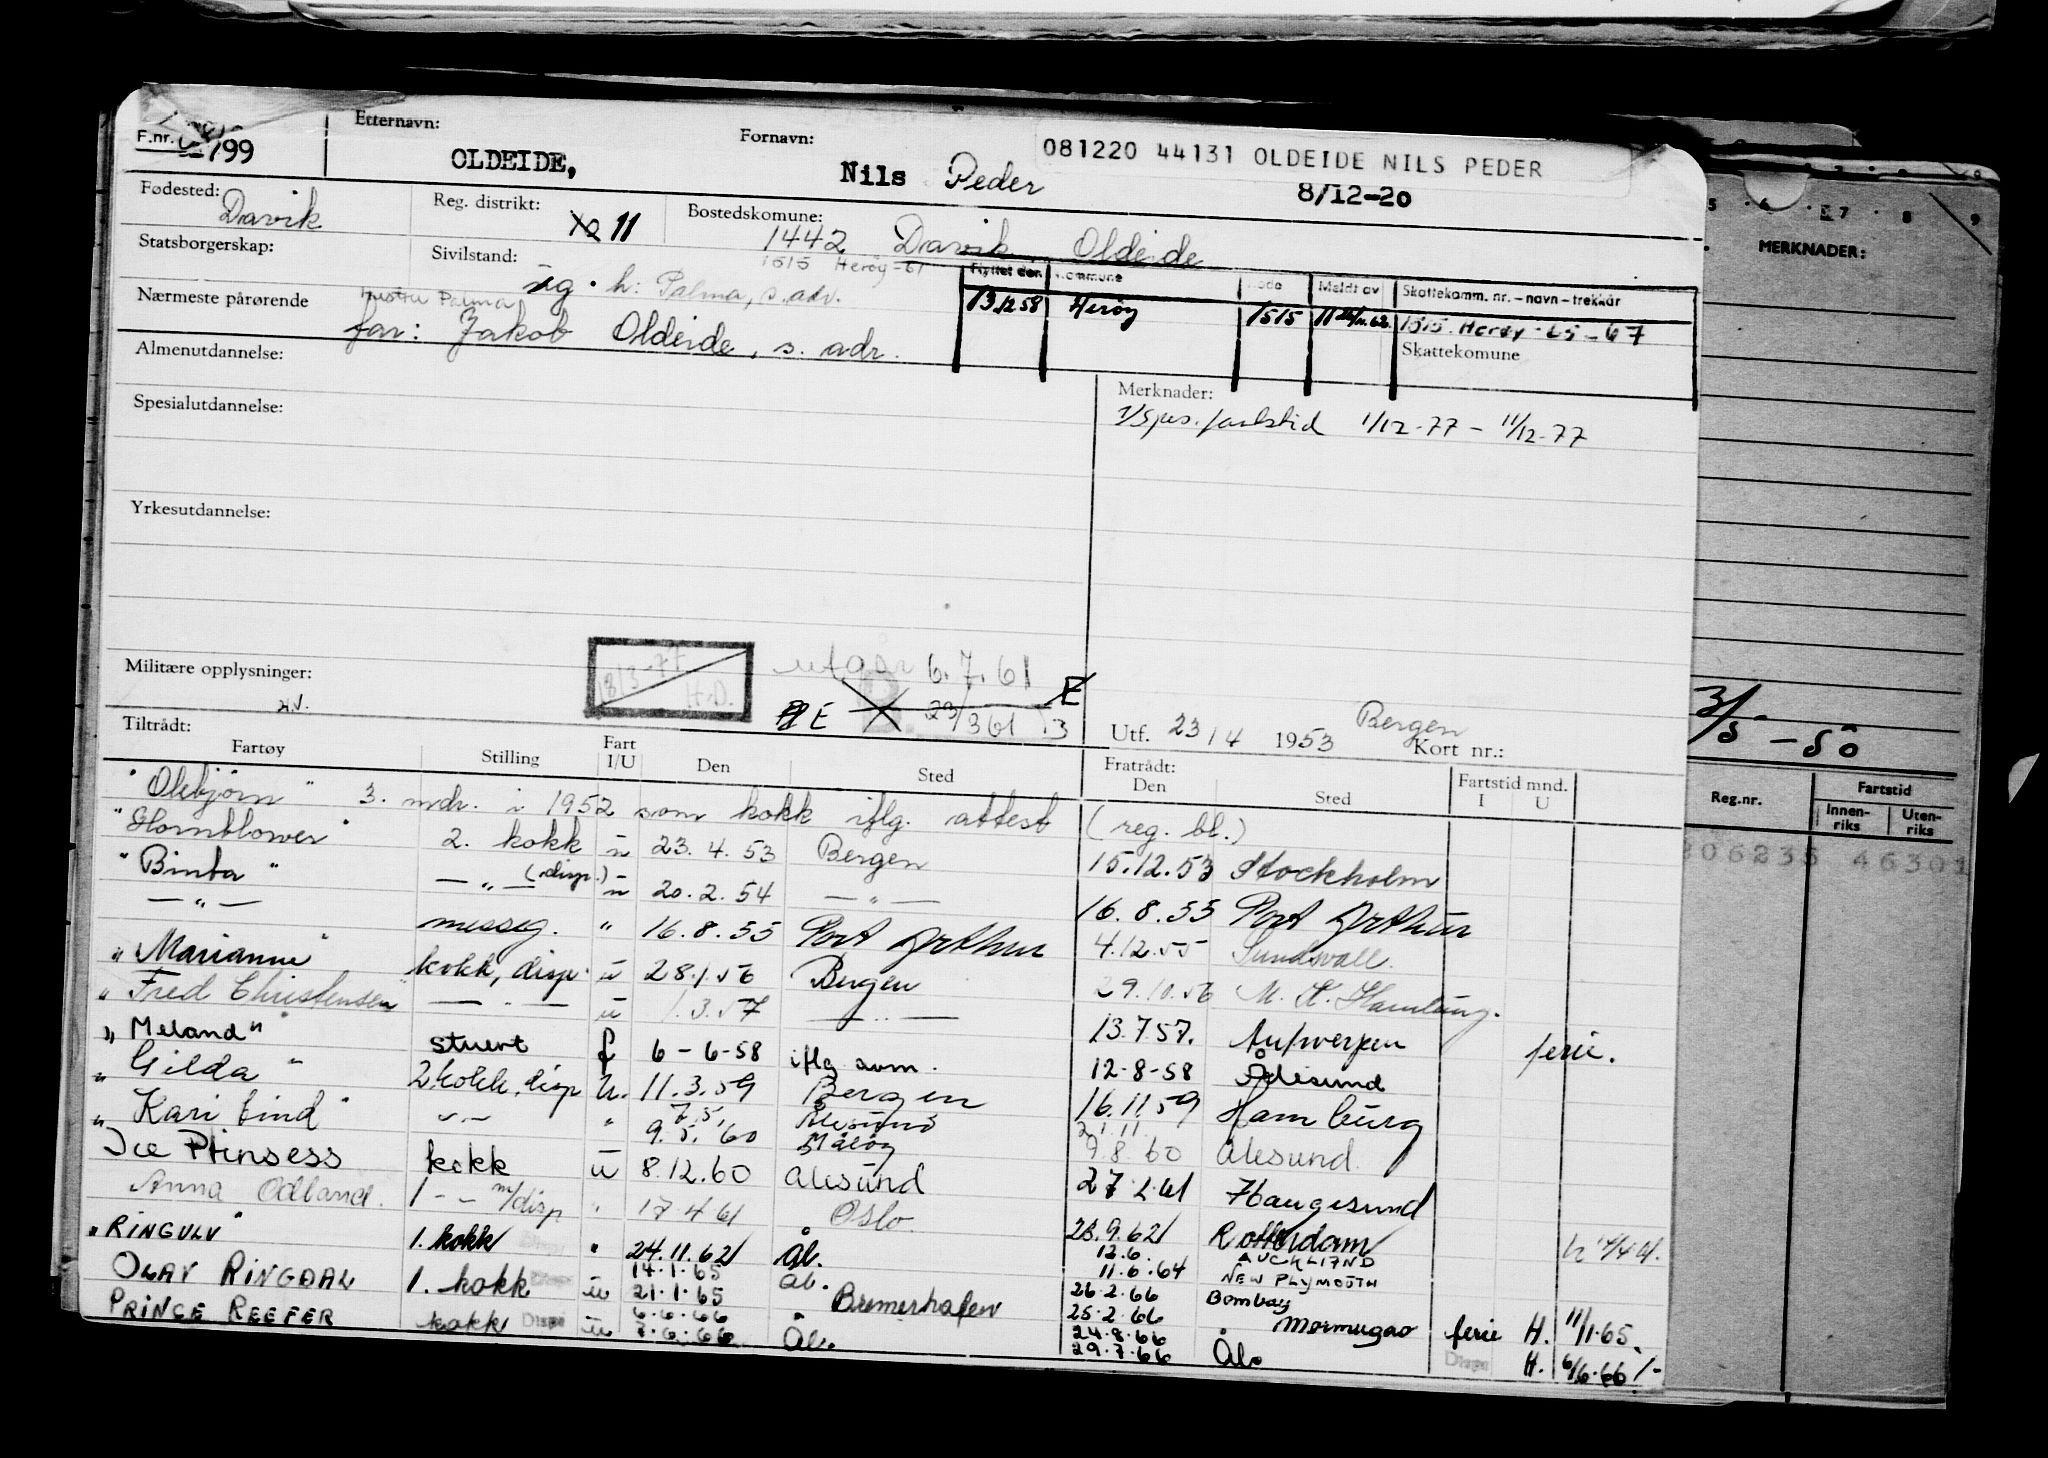 F.nr. 799 Etternavn: OLDEIDE, Fornavn: Nils Peder 081220 44131 OLDEIDE NILS PEDER
8/12-20
Fødested: Davik Reg. distrikt: 11 Bostedskomune: 1442 Davik Oldeide
1515 Herøy-61
Statsborgerskap: Sivilstand: ug. h: Palma, s. adr.
Flyttet den Kommune Kode Meldt av Skattekomm. nr. – navn – trekkår
13/12 58 Herøy 1515 11 1515 Herøy-65-67
Skattekomune
Nærmeste pårørende hustru Palma
far: Jakob Oldeide, s. adr.
Almenutdannelse:
Merknader:
Spesialutdannelse:
1/12-77 – 11/12-77
Yrkesutdannelse:
Militære opplysninger:
18/3-77
H.D.
utgår 6.7.61
E 23/3 61 E
Utf. 23/4 1953 Bergen Kort nr.:
Tiltrådt: Fratrådt:
Fartøy Stilling Fart I/U Den Sted Den Sted Fartstid mnd. I U
"Olebjørn" 3. mdr. i 1952 som kokk iflg. attest (reg. bl.)
"Hornblower" 2. kokk u 23.4.53 Bergen 15.12.53 Stockholm
"Binta" — " — (disp.) u 20.2.54 — " — 16.8.55 Port Arthur
— " — messeg. " 16.8.55 Port Arthur 4.12.55 Sundsvall.
"Marianne" kokk, disp. u 28.1.56 Bergen 29.10.56 M. K. Hamburg.
"Fred Christensen" — " — u 1.3.57 — " — 13.7.57. Antwerpen ferie.
"Meland" stuert f 6-6-58 iflg avm. 12-8-58 Ålesund
"Gilda" 2 kokk, disp u. 11.3.59 Bergen 16.11.59 Hamburg
7.5. Ålesund 21.11
"Kari Lind" -"- " 9.5.60 Måløy 9.8.60 Ålesund.
Ice Prinsess kokk u 8.12.60 Ålesund 27.2.61 Haugesund
Anna Odland. 1 -"- m/disp " 17.4.61 Oslo 23.9.62 Rotterdam
"RINGULV" 1. kokk " 24.11.62 Ål. 12.6. AUCKLAND
11.6.64 NEW PLYMOUTH
14.1.65 Ål. 26.2.66 Bombay
OLAV RINGDAL 1. kokk u 21.1.65 Bremerhafen 25.2.66 Mormugao ferie H. 11/1.65.
6.6.66 24.8.66
PRINCE REEFER kokk Disp u 7.6.66 Ål. 29.7.66 Ål. Disp H. 6/6.66 /-
5 6 7 8 9
MERKNADER:
3/5 - 50
Reg.nr. Fartstid
Innen-riks Uten-riks
206235 46301